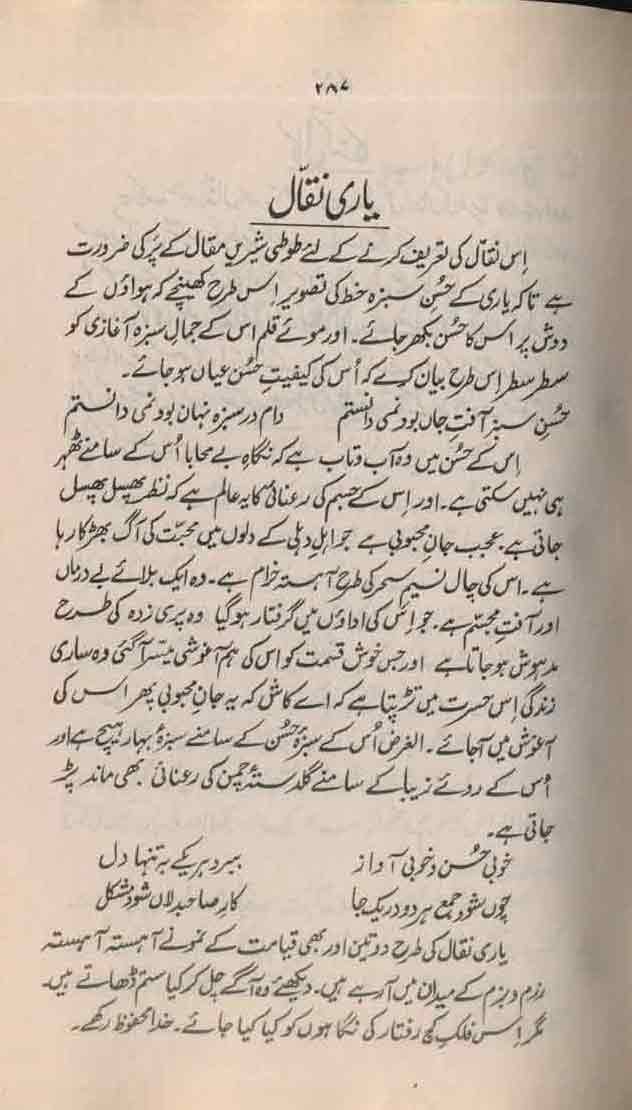 ۲۸۷
یاری نقّال
اِس نقّال کی تعریف کرنے کے لئے طوطیِ شیریں مقال کے پَر کی ضرورت
ہے تاکہ یاری کے حُسنِ سبزہ خط کی تصویر اِس طرح کھینچے کہ ہواؤں کے
دوش پر اس کا حُسن بکھر جائے۔ اور موئے قلم اس کے جمالِ سبزہ آغازی کو
سطر سطر اِس طرح بیان کرے کہ اُس کی کیفیتِ حُسن عیاں ہو جائے۔
حُسنِ سبز آفتِ جاں بود نمی دانستم دام در سبزہ نہاں بود نمی دانستم
اِس کے حُسن میں وہ آب و تاب ہے کہ نگاہِ بے محابا اُس کے سامنے ٹھہر
ہی نہیں سکتی ہے۔ اور اِس کے جسم کی رعنائی کا یہ عالم ہے کہ نظر پھسل پھسل
جاتی ہے۔ عجیب جانِ محبوبی ہے جو اہلِ دہلی کے دلوں میں محبّت کی آگ بھڑکا رہا
ہے۔ اس کی چال نسیمِ سحر کی طرح آہستہ خرام ہے۔ وہ ایک بلائے بے درماں
اور آفتِ مجسّم ہے۔ جو اِس کی اداؤں میں گرفتار ہو گیا وہ پری زدہ کی طرح
مدہوش ہو جاتا ہے اور جس خوش قسمت کو اس کی ہم آغوشی میّسر آ گئی وہ ساری
زندگی اِس حسرت میں تڑپتا ہے کہ اے کاش کہ یہ جانِ محبوبی پھر اس کی
آغوش میں آ جائے۔ الغرض اُس کے سبزۂ حُسن کے سامنے سبزۂ بہار ہیچ ہے اور
اُس کے روئے زیبا کے سامنے گلدستۂ چمن کی رعنائی بھی ماند پڑ
جاتی ہے۔
خوبیِ حُسن و خوبیِ آواز ببرد ہر یکے بہ تنہا دل
چوں شود جمع ہر دو در یک جا کارِ صاحبدلاں شود مشکل
یاری نقال کی طرح دو تین اور بھی قیامت کے نمونے آہستہ آہستہ
رزم و بزم کے میدان میں آ رہے ہیں۔ دیکھئے وہ آگے چل کر کیا ستم ڈھاتے ہیں۔
مگر اِس فلکِ کج رفتار کی نگاہوں کو کیا کیا جائے۔ خدا محفوظ رکھے۔